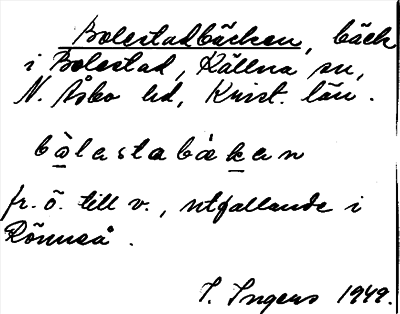 Bolestadbäcken, bäck
i Bolestad, Källna sn,
N. Åsbo hd, Krist. län.
bòlastabäkan
fr. ö. till v., utfallande i
Rönneå.
I. Ingers 1949.